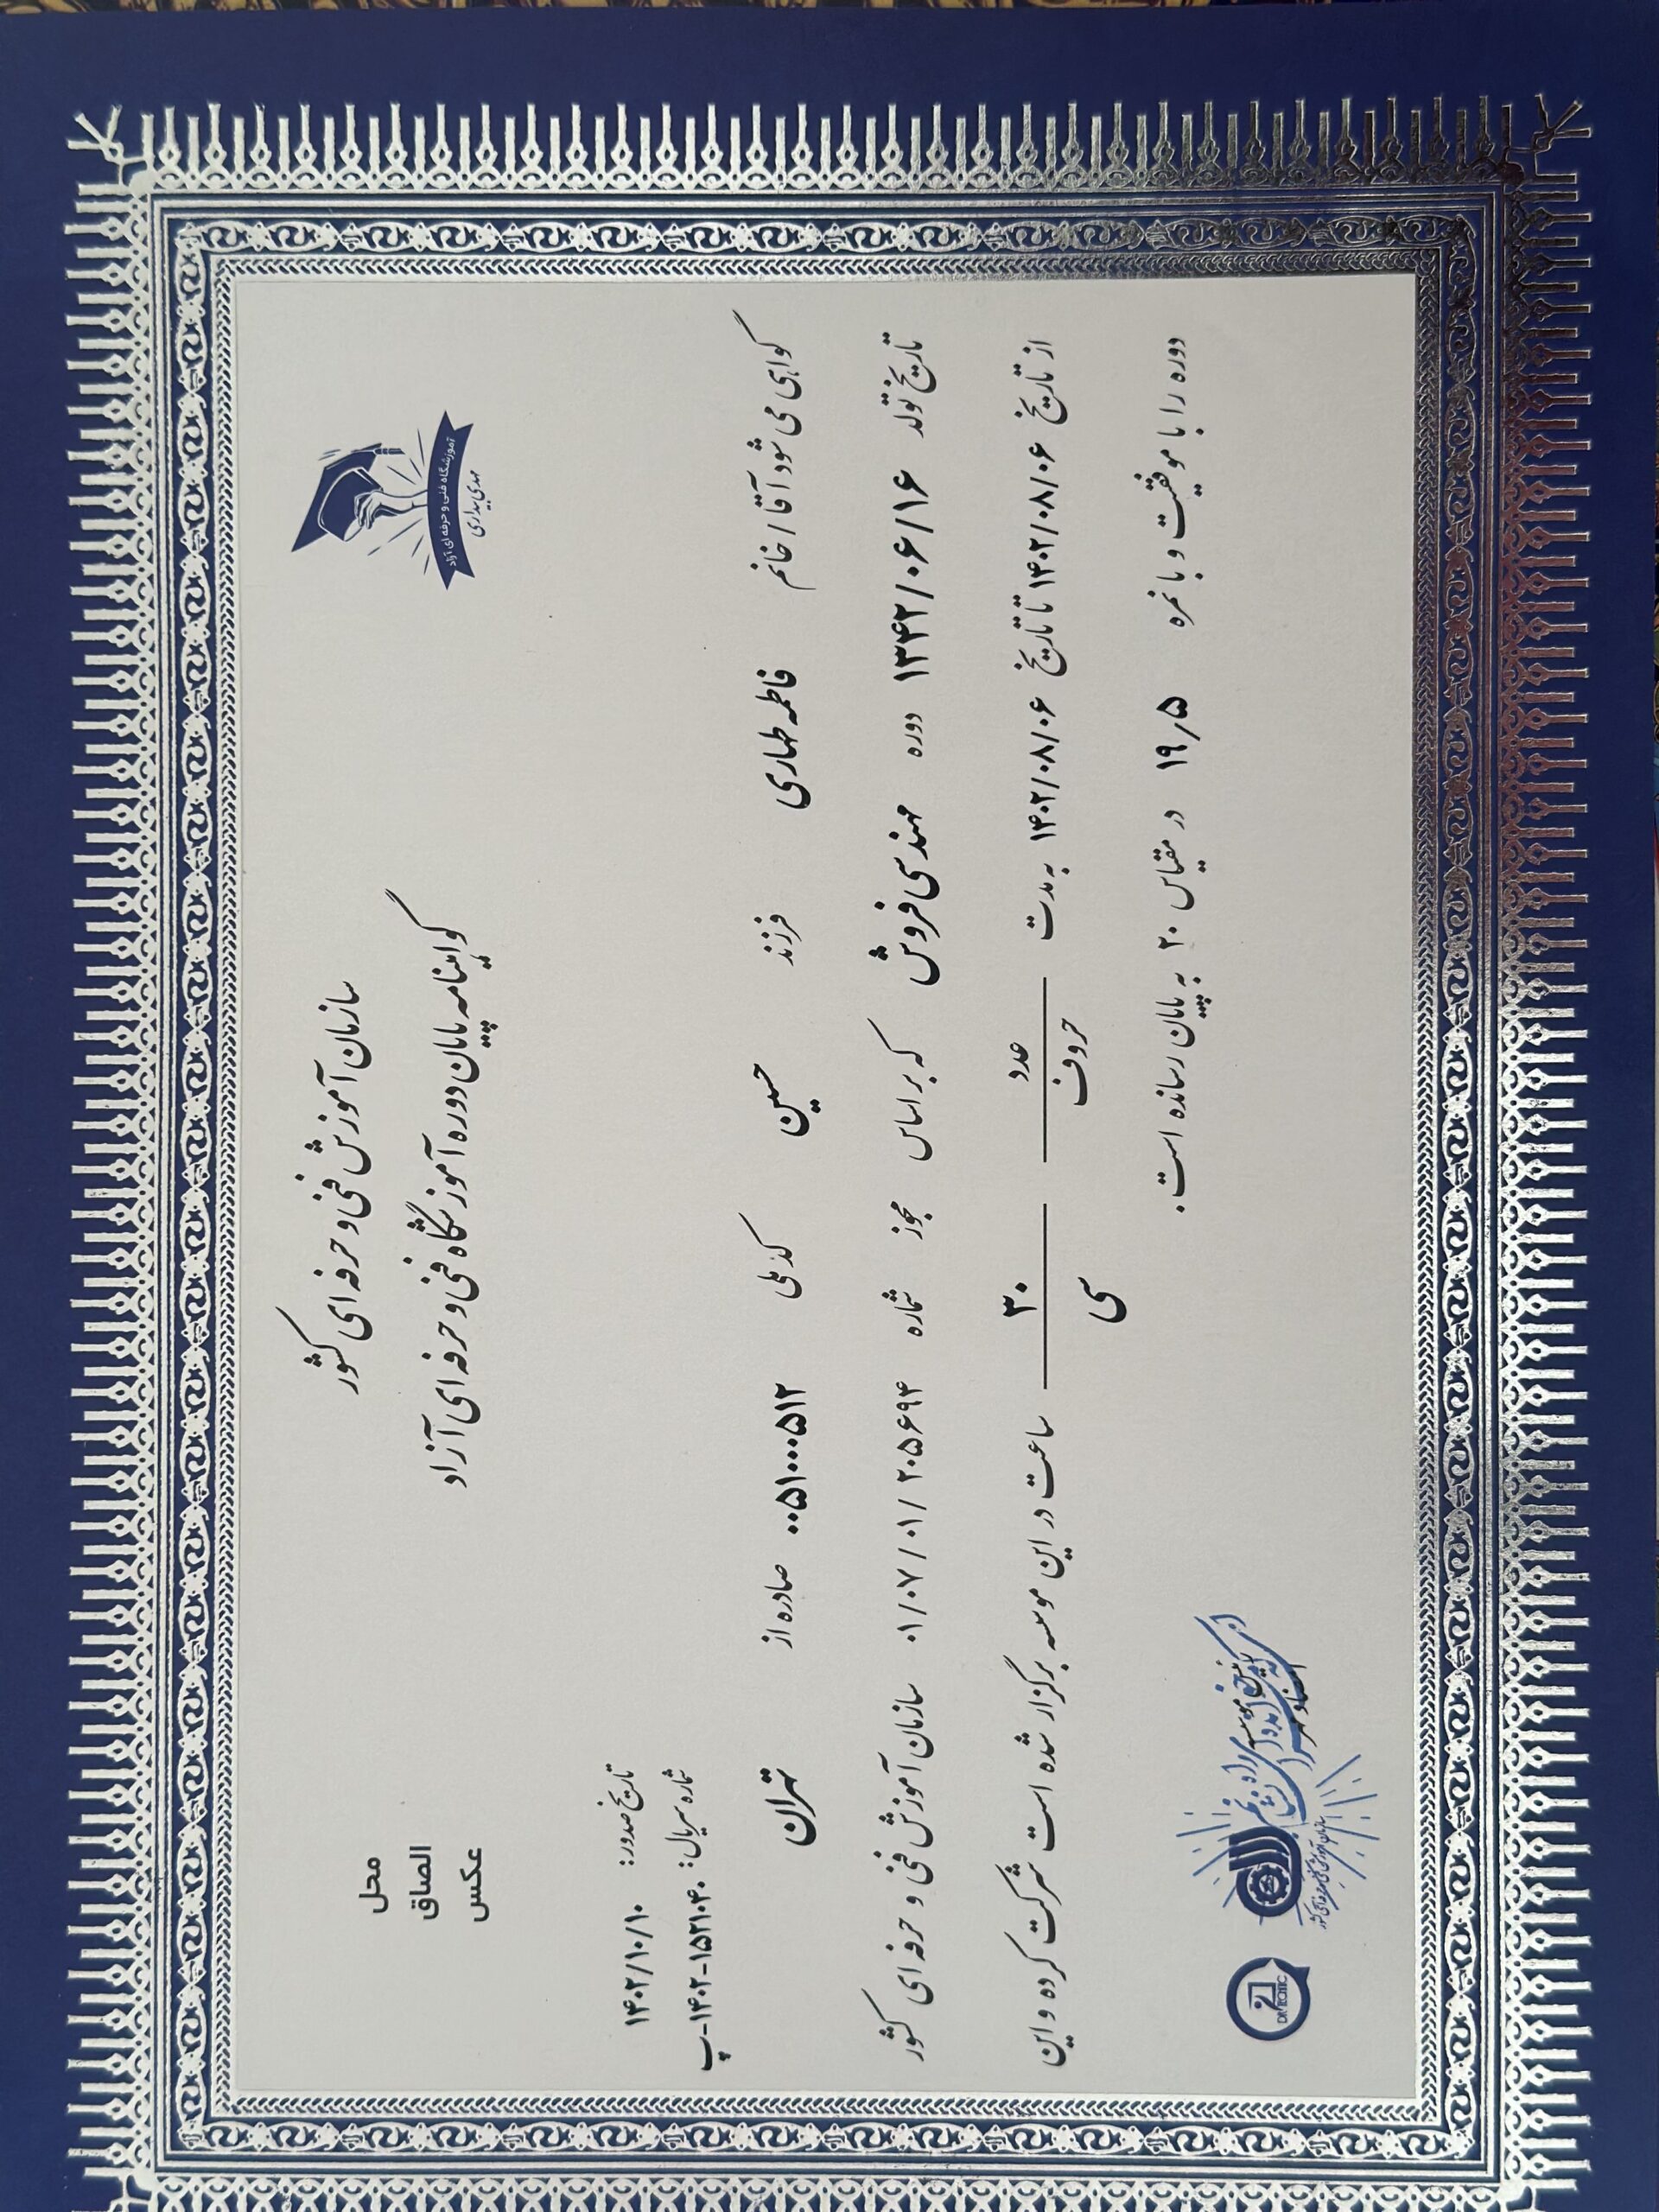 سازمان آموزش فنی و حرفه ای کشور
گواهینامه پایان دوره آموزشگاه فنی و حرفه ای آزاد
آموزشگاه فنی و حرفه ای آزاد
مهدی بیداری
محل
الصاق
عکس
تاریخ صدور: ۱۴۰۲/۱۰/۱۰
شماره سریال: ۱۵۲۱۰۴۰-۱۴۰۲-پ
گواهی می شود آقا/خانم فاطمه طهاری فرزند حسین کد ملی ۰۰۵۱۰۰۰۵۱۲ صادره از تهران
تاریخ تولد ۱۳۴۲/۰۶/۱۶ دوره مهندسی فروش که بر اساس مجوز شماره ۰۱/۰۷/۰۱/۲۰۵۶۹۴ سازمان آموزش فنی و حرفه ای کشور
از تاریخ ۱۴۰۲/۰۸/۰۶ تا تاریخ ۱۴۰۲/۰۸/۰۶ به مدت عدد ۳۰ ساعت در این موسسه برگزار شده است شرکت کرده و این
حروف سی
دوره را با موفقیت و با نمره ۱۹٫۵ در مقیاس ۲۰ به پایان رسانده است.
سازمان آموزش فنی و حرفه ای کشور